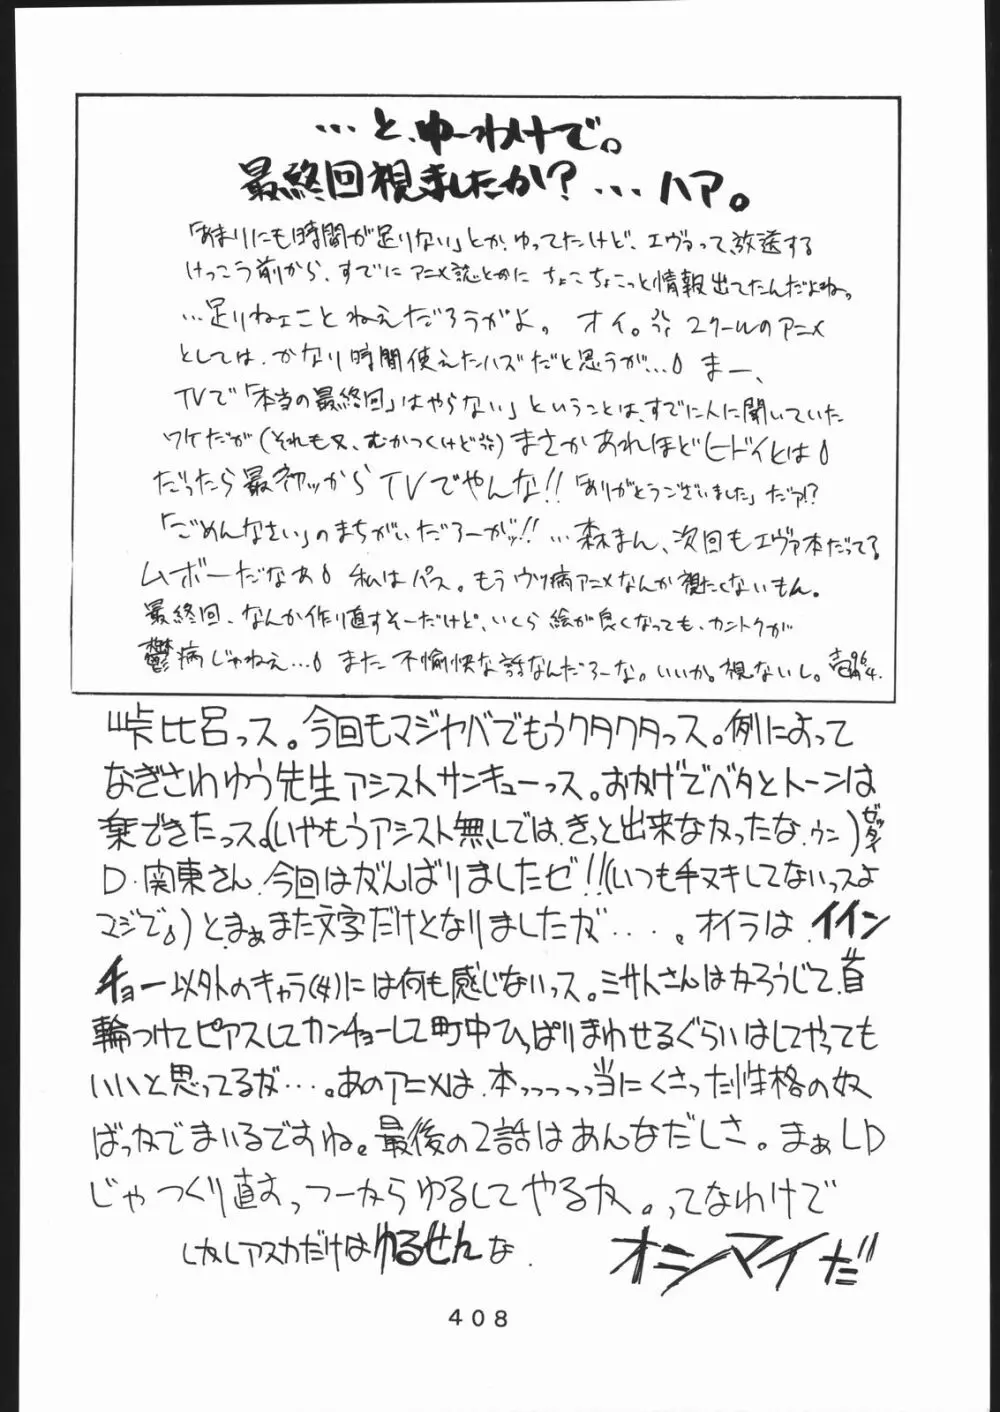 …と、ゆーわけで。
最終回視ましたか?…ハァ。
「あまりにも時間が足りない」とか、ゆってたけど、エヴァって、放送する
けっこう前から、すでにアニメ誌とかに ちょこちょこっと情報出てたんだよね。
…足りねェことねえだろうがよ。オイ。 2クールのアニメ
としては、かなり時間使えたハズだと思うが… まー、
TVで「本当の最終回」はやらない」ということは、すでに人に聞いていた
ワケだが(それも又、むかつくけど) まさかあれほどヒドイとは
だったら最初ッからTVでやんな!!「ありがとうございました」だァ!?
「ごめんなさい」のまちがいだろーがッ!! …森まん、次回もエヴァ本だってさ
ムボーだなぁ 私はパス。もうウツ病アニメなんか視たくないもん。
最終回、なんか作り直すそーだけど、いくら絵が良くなっても、カントクが
鬱病じゃねえ… また不愉快な話なんだろーな。いいか。視ないし。 96.4.
峠比呂っス。今回もマジヤバでもうクタクタっス。例によって
なぎさわゆう先生アシストサンキューっス。おかげでベタとトーンは
楽できたっス。(いやもうアシスト無しでは、きっと出来なかったな、ウン)ゼッタイ
D・関東さん、今回はがんばりましたゼ!!(いつも手ヌキしてないっスよ
マジで)とまぁまた文字だけとなりましたが・・・・。オイラは、イイン
チョー以外のキャラ(女)には何も感じないっス。ミサトさんはかろうじて、首
輪つけてピアスしてカンチョーして町中ひっぱりまわせるぐらいはしてやっても
いいと思ってるが・・・。あのアニメは、本っっっっ当にくさった性格の奴
ばっかでまいるですね。最後の2話はあんなだしさ。まぁLD
じゃつくり直すっつーからゆるしてやるか。ってなわけで
しかしアスカだけはゆるせんな オシマイだ
408